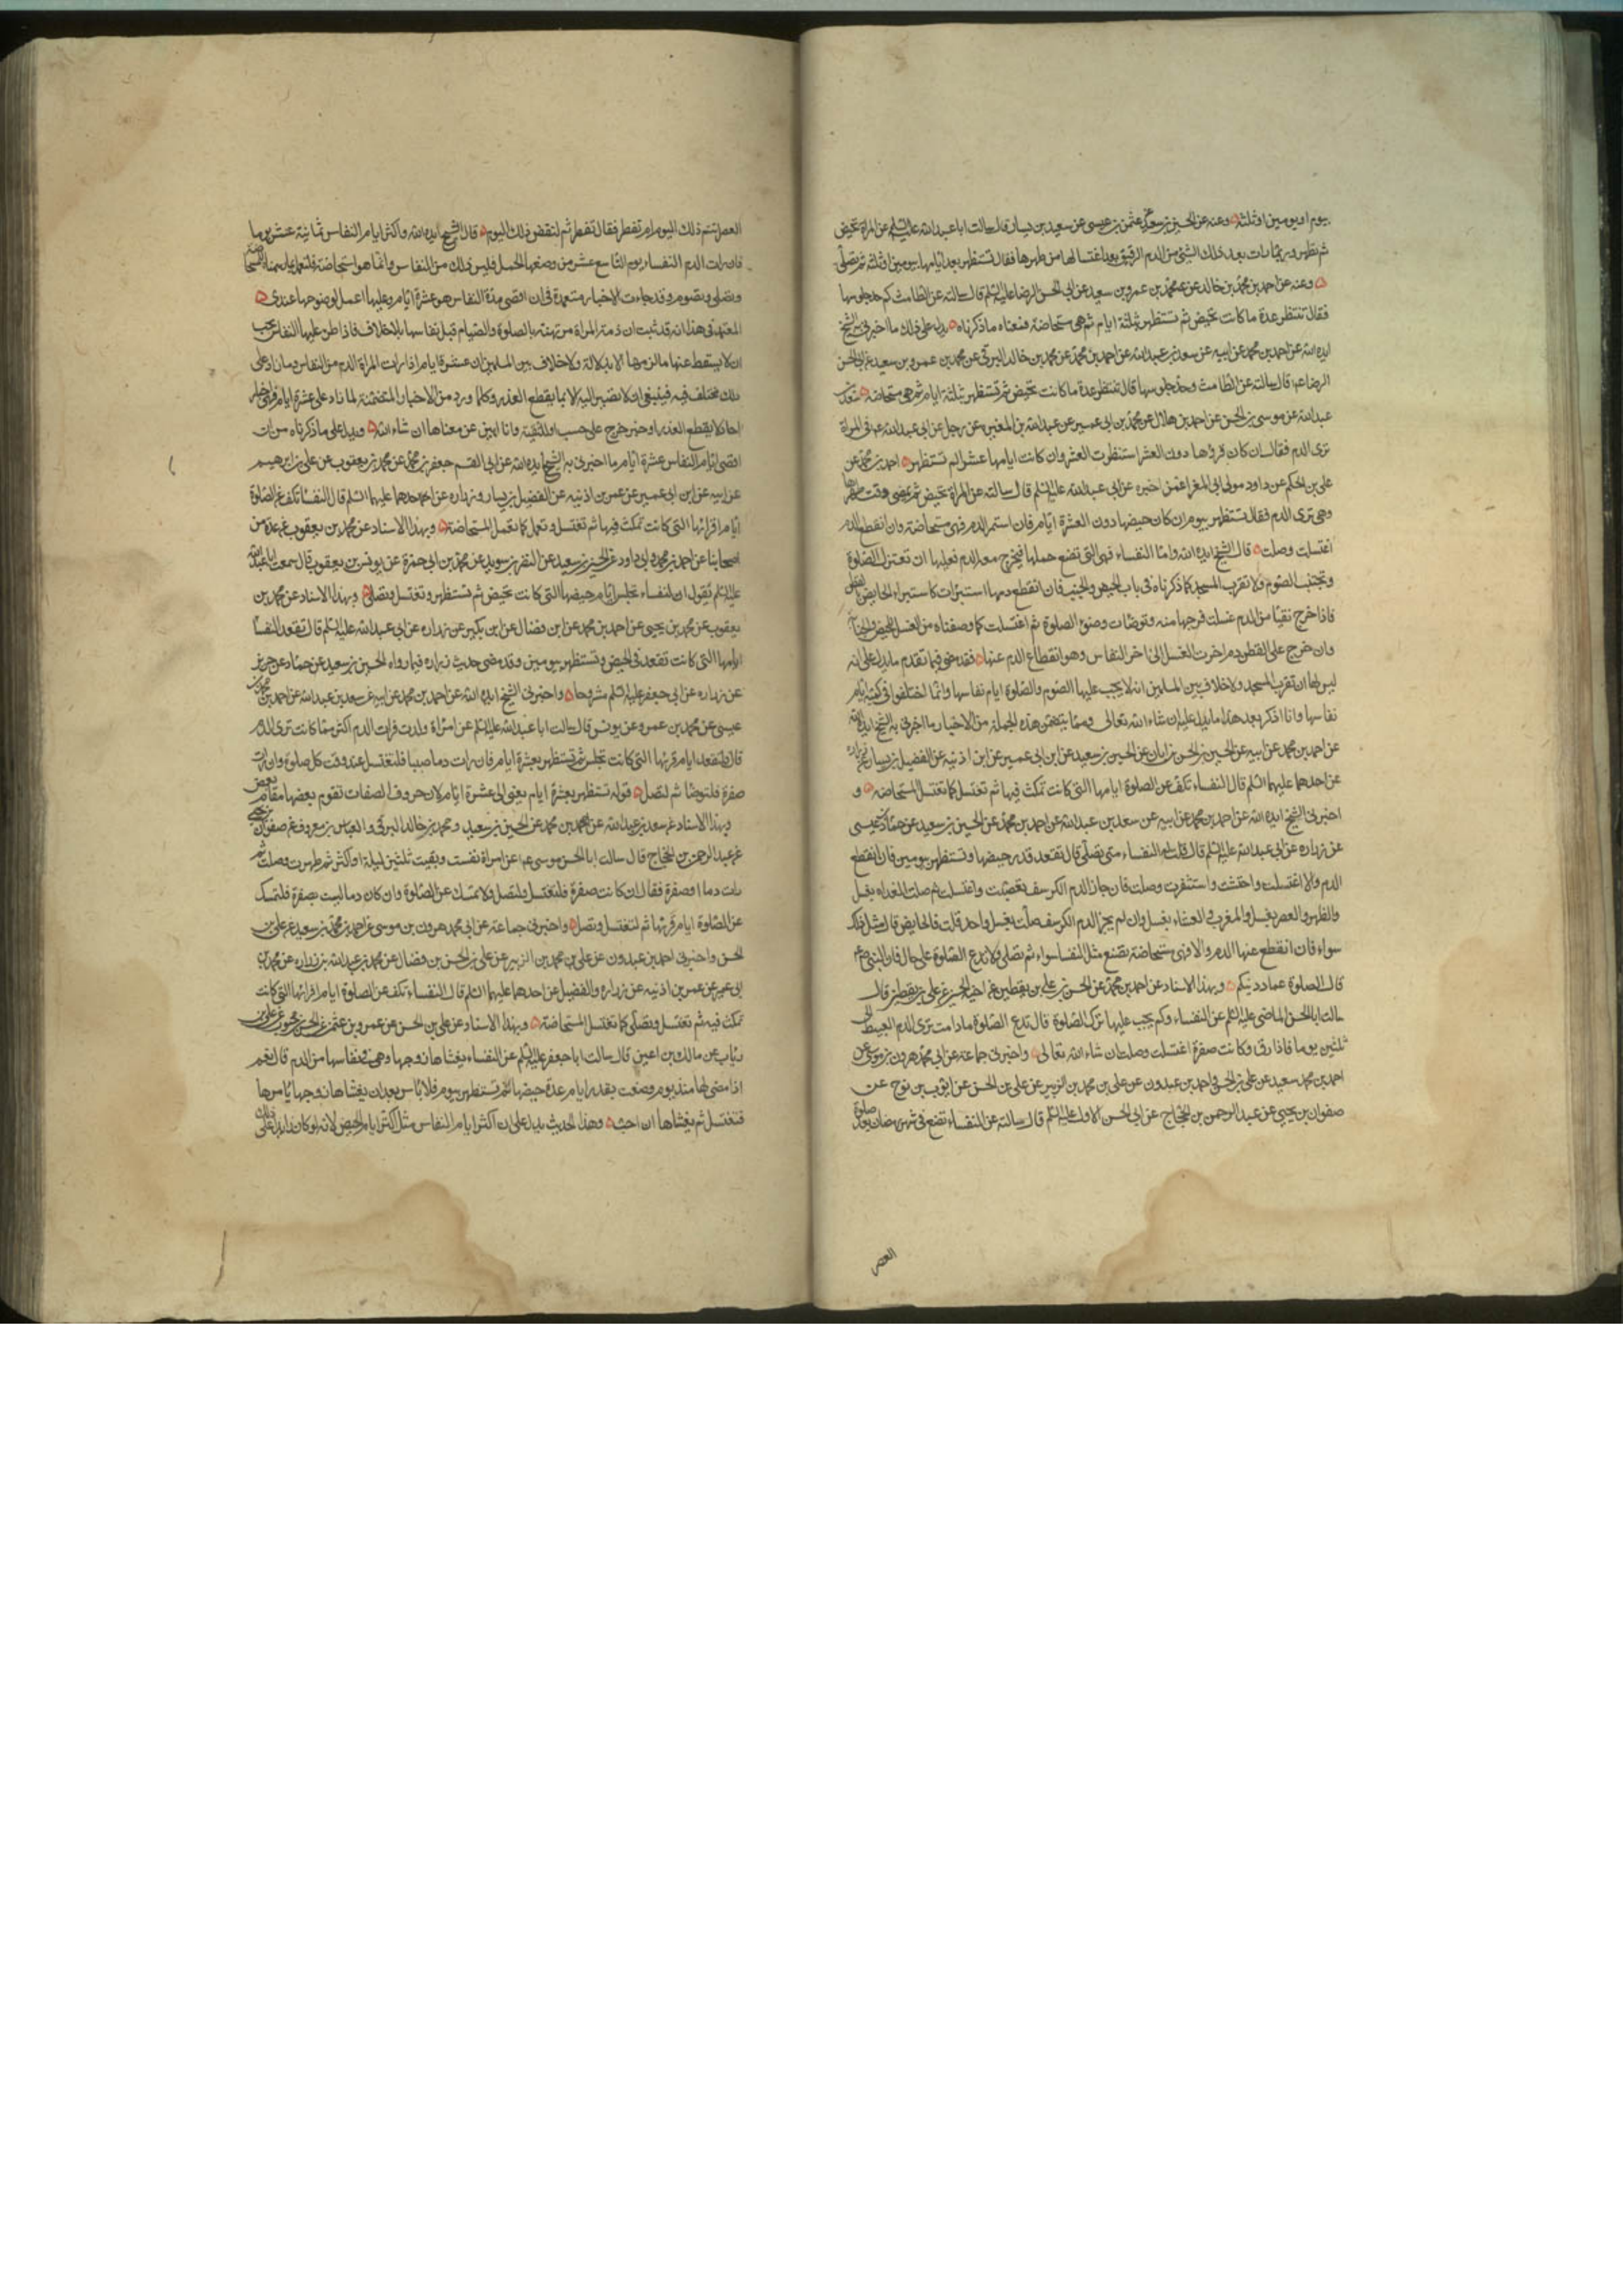 يوم او يومين او ثلثة وعنه عن الحسين بن سعيد عن عثمن بن عيسى عن سعيد بن يسار قال سالت ابا عبد الله عليه السلم عن المراة تحيض
ثم تطهر وربما رات بعد ذلك الشئ من الدم الرقيق بعد اغتسالها من طهرها فقال تستظهر بعد ايامها بيومين او ثلثة ثم تصلى
وعنه عن احمد بن محمد بن خالد عن محمد بن عمرو بن سعيد عن ابى الحسن الرضا عليه السلم قال سالته عن الطامث كم حد جلوسها
فقال تنتظر عدة ما كانت تحيض ثم تستظهر بثلثة ايام ثم هى مستحاضة فمعناه ما ذكرناه يدل على ذلك ما اخبرنى به الشيخ
ايده الله عن احمد بن محمد عن ابيه عن سعد بن عبد الله عن احمد بن محمد عن محمد بن خالد البرقى عن محمد بن عمرو بن سعيد عن ابى الحسن
الرضا قال سالته عن الطامث وحد جلوسها قال تنتظر عدة ما كانت تحيض ثم تستظهر بثلثة ايام ثم هى مستحاضة سعد بن
عبد الله عن موسى بن الحسن عن احمد بن هلال عن محمد بن ابى عمير عن عبد الله بن المغيرة عن رجل عن ابى عبد الله فى المراة
ترى الدم فقال ان كان قرؤها دون العشر انتظرت العشر وان كانت ايامها عشرا لم تستظهر احمد بن محمد عن
على بن الحكم عن داود مولى ابى المغرا عمن اخبره عن ابى عبد الله عليه السلم قال سالته عن المراة تحيض ثم يمضى وقت طهرها
وهى ترى الدم فقال تستظهر بيوم ان كان حيضها دون العشرة ايام فان استمر الدم فهى مستحاضة وان انقطع الدم
اغتسلت وصلت قال الشيخ ايده الله واما النفساء فهى التى تضع حملها فيخرج معه الدم فعليها ان تعتزل الصلوة
وتجتنب الصوم ولا تقرب المسجد كما ذكرناه فى باب الحيض والجنب فان انقطع دمها استبرات كاستبراء الحايض
فاذا خرج نقيا من الدم غسلت فرجها منه وتوضات وضوء الصلوة ثم اغتسلت كما وصفناه من الغسل للحيض والجنابة
وان خرج على القطن دم اخرت الغسل الى اخر النفاس وهو انقطاع الدم عنها فقد مضى فيما تقدم ما يدل على انه
ليس لها ان تقرب المسجد ولا خلاف بين المسلمين انه لا يجب عليها الصوم والصلوة ايام نفاسها وانما اختلفوا فى كمية ايام
نفاسها وانا اذكر بعد هذا ما يدل عليه ان شاء الله تعالى ومما يتضمن هذه الجملة من الاخبار ما اخبرنى به الشيخ ايده الله
عن احمد بن محمد عن ابيه عن الحسين بن الحسن بن ابان عن الحسين بن سعيد عن ابن ابى عمير عن ابن اذينه عن الفضيل بن يسار
عن احدهما عليهما السلم قال النفساء تكف عن الصلوة ايامها التى كانت تمكث فيها ثم تغتسل كما تغتسل المستحاضه و
اخبرنى الشيخ ايده الله عن احمد بن محمد عن ابيه عن سعد بن عبد الله عن احمد بن محمد عن الحسين بن سعيد عن حماد بن عيسى
عن زراره عن ابى عبد الله عليه السلم قال قلت له النفساء متى تصلى قال تقعد قدر حيضها وتستظهر بيومين فان انقطع
الدم والا اغتسلت واحتشت واستثفرت وصلت فان جاز الدم الكرسف تعصبت واغتسلت ثم صلت الغداة بغسل
والظهر والعصر بغسل والمغرب والعشاء بغسل وان لم يجز الدم الكرسف صلت بغسل واحد قلت فالحايض قال مثل ذلك
سواء فان انقطع عنها الدم والا فهى مستحاضة تصنع مثل النفساء سواء ثم تصلى ولا تدع الصلوة على حال فان النبى
قال الصلوة عماد دينكم وبهذا الاسناد عن احمد بن محمد عن الحسن بن على بن يقطين عن اخيه الحسين عن على بن يقطين قال
سالت ابا الحسن الماضى عليه السلم عن النفساء وكم يجب عليها ترك الصلوة قال تدع الصلوة ما دامت ترى الدم العبيط الى
ثلثين يوما فاذا رق وكانت صفرة اغتسلت وصلت ان شاء الله تعالى واخبرنى جماعة عن ابى محمد هرون بن موسى عن
احمد بن محمد سعيد عن على بن الحسن واحمد بن عبدون عن على بن محمد بن الزبير عن على بن الحسن عن ايوب بن نوح عن
صفوان بن يحيى عن عبد الرحمن بن الحجاج عن ابى الحسن الاول عليه السلم قال سالته عن النفساء تضع فى شهر رمضان بعد صلوة
العصر
العصر اتتم ذلك اليوم ام تفطر فقال تفطر ثم لتقض ذلك اليوم قال الشيخ ايده الله واكثر ايام النفاس ثمانية عشر يوما
فان رات الدم النفساء يوم التاسع عشر من وضعها الحمل فليس ذلك من النفاس وانما هو استحاضة فلتعمل
وتصلى وتصوم وقد جاءت الاخبار معتمدة فى ان اقصى مدة النفاس هو عشرة ايام وعليها اعمل لوضوحها عندى
المعتمد فى هذا انه قد ثبت ان ذمة المراة مرتهنة بالصلوة والصيام قبل نفاسها بلا خلاف فاذا طرء عليها النفاس يجب
ان لا يسقط عنها ما لزمها الا بدلالة ولا خلاف بين المسلمين ان عشرة ايام اذا رات المراة الدم من النفاس وما زاد على
ذلك مختلف فيه فينبغى ان لا نصير اليه الا بما يقطع العذر وكلما ورد من الاخبار المتضمنة لما زاد على عشرة ايام فهى اخبار
احاد لا يقطع العذر او خبر خرج على سبب او للتقية وانا ابين عن معناها ان شاء الله ويدل على ما ذكرناه من ان
اقصى ايام النفاس عشرة ايام ما اخبرنى به الشيخ ايده الله عن ابى القسم جعفر بن محمد عن محمد بن يعقوب عن على بن ابرهيم
عن ابيه عن ابن ابى عمير عن عمر بن اذينه عن الفضيل بن يسار وزراره عن احدهما عليهما السلم قال النفساء تكف عن الصلوة
ايام اقرائها التى كانت تمكث فيها ثم تغتسل وتعمل كما تعمل المستحاضة وبهذا الاسناد عن محمد بن يعقوب عن عدة من
اصحابنا عن احمد بن محمد وابى داود عن الحسين بن سعيد عن النضر بن سويد عن محمد بن ابى حمزة عن يونس بن يعقوب قال سمعت ابا عبد الله
عليه السلم يقول النفساء تجلس ايام حيضها التى كانت تحيض ثم تستظهر وتغتسل وتصلى وبهذا الاسناد عن محمد بن
يعقوب عن محمد بن يحيى عن احمد بن محمد عن ابن فضال عن ابن بكير عن زراره عن ابى عبد الله عليه السلم قال تقعد النفسا
ايامها التى كانت تقعد فى الحيض وتستظهر بيومين وقد مضى حديث زراره فيما رواه الحسين بن سعيد عن حماد عن حريز
عن زراره عن ابى جعفر عليه السلم مشروحا واخبرنى الشيخ ايده الله عن احمد بن محمد عن ابيه عن سعد بن عبد الله عن احمد بن محمد بن
عيسى عن محمد بن عمرو عن يونس قال سالت ابا عبد الله عليه السلم عن امراة ولدت فرات الدم اكثر مما كانت ترى
قال فلتقعد ايام قرئها التى كانت تجلس ثم تستظهر بعشرة ايام فان رات دما صبيبا فلتغتسل عند وقت كل صلوة وان رات
صفرة فلتوضا ثم لتصل قوله تستظهر بعشرة ايام يعنى الى عشرة ايام لان حروف الصفات تقوم بعضها مقام بعض
وبهذا الاسناد عن سعد بن عبد الله عن احمد بن محمد عن الحسين بن سعيد ومحمد بن خالد البرقى والعباس بن معروف عن صفوان بن يحيى
عن عبد الرحمن بن الحجاج قال سالت ابا الحسن موسى عن امراة نفست وبقيت ثلثين ليلة او اكثر ثم طهرت وصلت ثم
رات دما او صفرة فقال ان كانت صفرة فلتغتسل ولتصل ولا تمسك عن الصلوة وان كان دما ليست بصفرة فلتمسك
عن الصلوة ايام قرئها ثم لتغتسل وتصل واخبرنى جماعة عن ابى محمد هرون بن موسى عن احمد بن محمد بن سعيد عن على بن
الحسن واخبرنى احمد بن عبدون عن على بن محمد بن الزبير عن على بن الحسن بن فضال عن محمد بن عبد الله بن زراره عن محمد بن
ابى عمير عن عمر بن اذينه عن زراره والفضيل عن احدهما عليهما السلم قال النفساء تكف عن الصلوة ايام اقرائها التى كانت
تمكث فيه ثم تغتسل وتصلى كما تغتسل المستحاضة وبهذا الاسناد عن على بن الحسن عن عمرو بن عثمن عن الحسن بن محبوب عن على بن
رياب عن مالك بن اعين قال سالت ابا جعفر عليه السلم عن النفساء يغشاها زوجها وهى فى نفاسها من الدم قال نعم
اذا مضى لها منذ يوم وضعت بقدر ايام عدة حيضها ثم تستظهر بيوم فلا باس بعد ان يغشاها زوجها يامرها
فتغتسل ثم يغشاها ان احب وهذا الحديث يدل على ان اكثر ايام النفاس مثل اكثر ايام الحيض لانه لو كان زايدا على ذلك